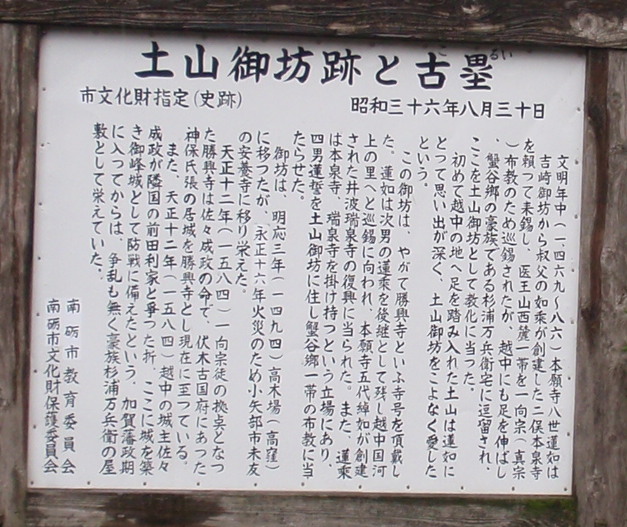 土山御坊跡と古塁
るい
市文化財指定(史跡)
昭和三十六年八月三十日
文明年中(一四六九~八六)本願寺八世蓮如は
吉崎御坊から叔父の如乗が創建した二俣本泉寺
を頼って来錫し、医王山西麓一帯を一向宗(真宗
)布教のため巡錫されたが、越中にも足を伸ばし
、蟹谷郷の豪族である杉浦万兵衛宅に逗留され、
ここを土山御坊として教化に当った。
初めて越中の地へ足を踏み入れた土山は蓮如に
とって思い出が深く、土山御坊をこよなく愛した
という。
この御坊は、やがて勝興寺といふ寺号を頂戴し
た。蓮如は次男の蓮乗を後継として残し越中国河
上の里へと巡錫に向われ、本願寺五代綽如が創建
された井波瑞泉寺の復興に当られた。また、蓮乗
は本泉寺、瑞泉寺を掛け持つという立場にあり、
四男蓮誓を土山御坊に住し蟹谷郷一帯の布教に当
たらせた。
御坊は、明応三年(一四九四)高木場(高窪)
に移つたが、永正十六年火災のため小矢部市末友
の安養寺に移り栄えた。
天正十二年(一五八四)一向宗徒の拠点となつ
た勝興寺は佐々成政の命で、伏木古国府にあった
神保氏張の居城を勝興寺とし現在に至つている。
また、天正十二年(一五八四)越中の城主佐々
成政が隣国の前田利家と争つた折、ここに城を築
き御峰城として防戦に備えたという。加賀藩政期
に入ってからは、争乱も無く豪族杉浦万兵衛の屋
敷として栄えていた。
南砺市教育委員会
南砺市文化財保護委員会